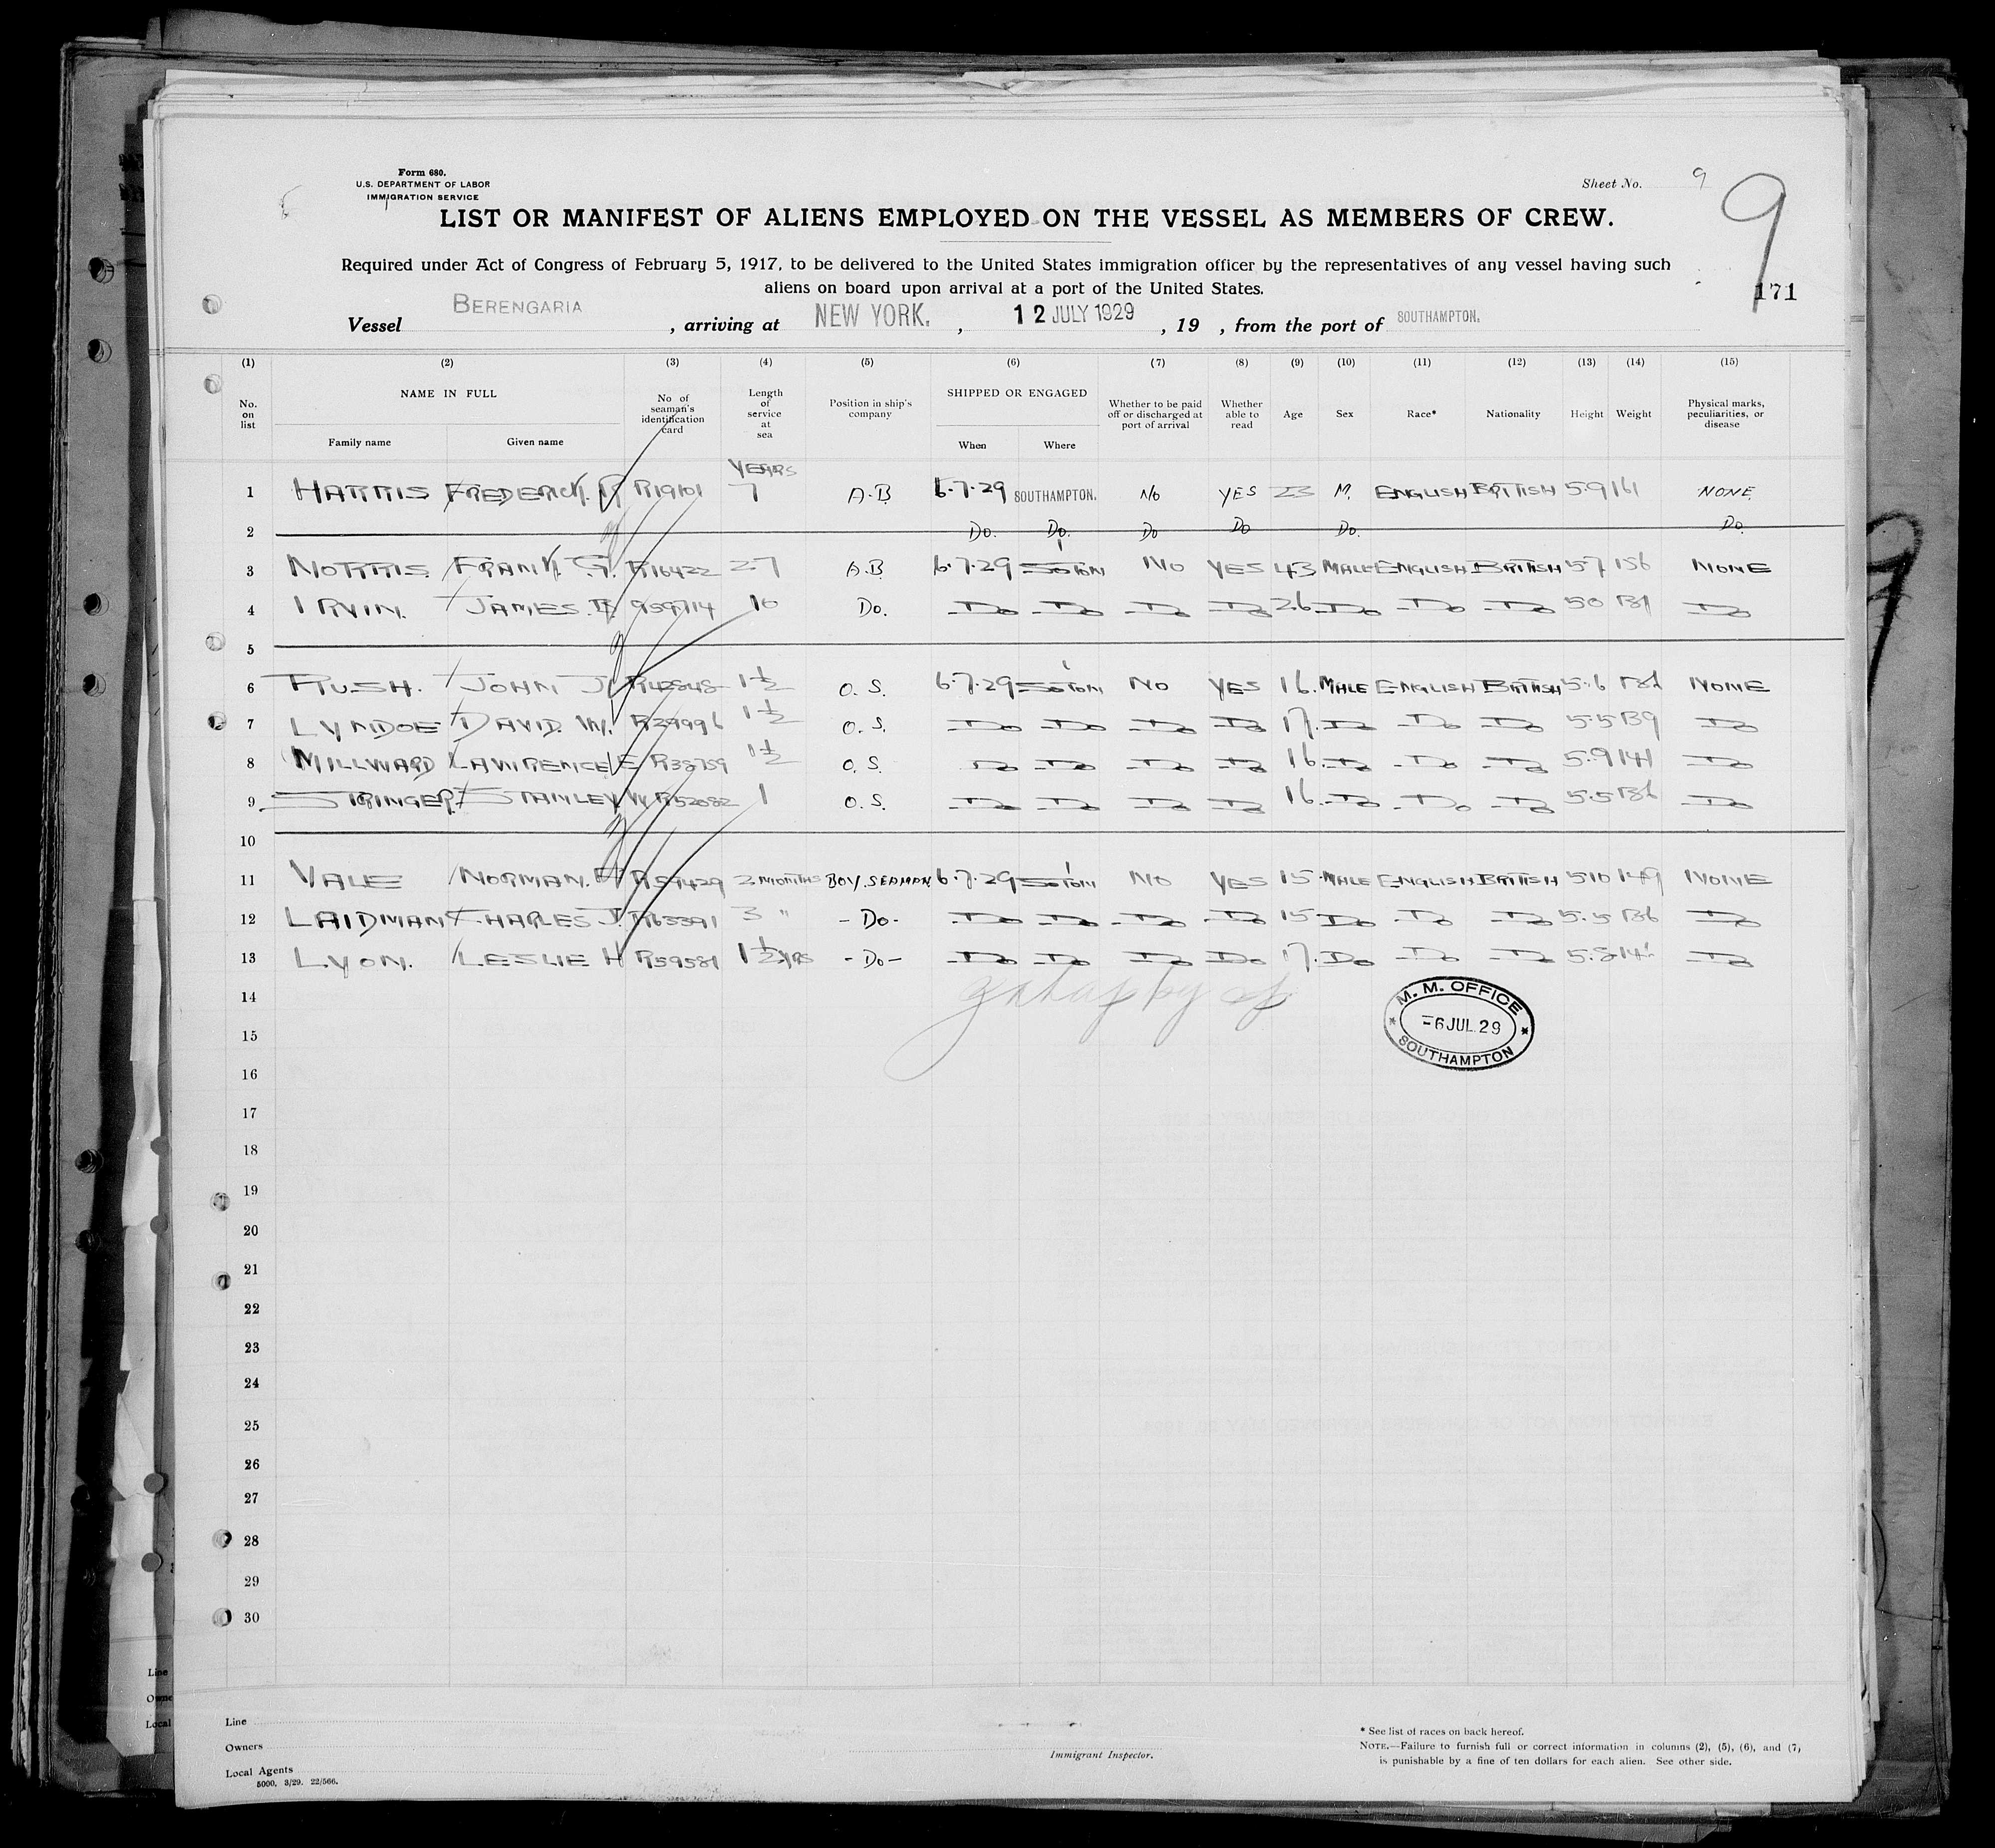 Form 680.
U.S. DEPARTMENT OF LABOR
IMMIGRATION SERVICE
Sheet No. 9
9
LIST OR MANIFEST OF ALIENS EMPLOYED ON THE VESSEL AS MEMBERS OF CREW.
Required under Act of Congress of February 5, 1917, to be delivered to the United States immigration officer by the representatives of any vessel having such
aliens on board upon arrival at a port of the United States.
171
Vessel BERENGARIA, arriving at NEW YORK., 12 JULY 1929, 19 , from the port of SOUTHAMPTON.
(1) (2) (3) (4) (5) (6) (7) (8) (9) (10) (11) (12) (13) (14) (15)
No. on list NAME IN FULL Family name Given name No of seaman's identification card Length of service at sea Position in ship's company SHIPPED OR ENGAGED When Where Whether to be paid off or discharged at port of arrival Whether able to read Age Sex Race* Nationality Height Weight Physical marks, peculiarities, or disease
YEARS
1 HARRIS FREDERICK. R R19101 7 A.B 6.7.29 SOUTHAMPTON. No YES 23 M. ENGLISH BRITISH 5.9 161 NONE
2 Do. Do. Do Do Do. Do.
3 NORRIS. FRANK. G. R16422 27 A.B. 6.7.29 SO'TON No YES 43 MALE ENGLISH BRITISH 5.7 156 NONE
4 IRVIN. JAMES. 959714 10 Do. Do Do Do Do 26 Do Do Do 50 131 Do
5
6 RUSH. JOHN J R42848 1½ O.S. 6.7.29 SO'TON No YES 16. MALE ENGLISH BRITISH 5.6 NONE
7 LYNDOE DAVID. W. R39996 1½ O.S. Do Do Do Do 17. Do Do Do 5.5 139 Do
8 MILLWARD LAWRENCE E R38759 1½ O.S. Do Do Do Do 16. Do Do Do 5.9 141 Do
9 STRINGER. STANLEY W R52082 1 O.S. Do Do Do Do 16. Do Do Do 5.5 136 Do
10
11 VALE NORMAN. H R59429 2 MONTHS BOY. SEAMAN 6.7.29 SO'TON No YES 15. MALE ENGLISH BRITISH 510 149 NONE
12 LAIDMAN CHARLES J. R63391 3 " - Do - Do Do Do Do 15 Do Do Do 5.5 136 Do
13 LYON. LESLIE H R59581 1½ YRS - Do - Do Do Do Do 17. Do Do Do 5.8 Do
14
M. M. OFFICE
-6 JUL. 29
SOUTHAMPTON
15
16
17
18
19
20
21
22
23
24
25
26
27
28
29
30
Line
Owners
Local Agents
5000. 3/29. 22/566.
Immigrant Inspector.
* See list of races on back hereof.
NOTE.—Failure to furnish full or correct information in columns (2), (5), (6), and (7,
is punishable by a fine of ten dollars for each alien. See other side.
Line
Owne
Local